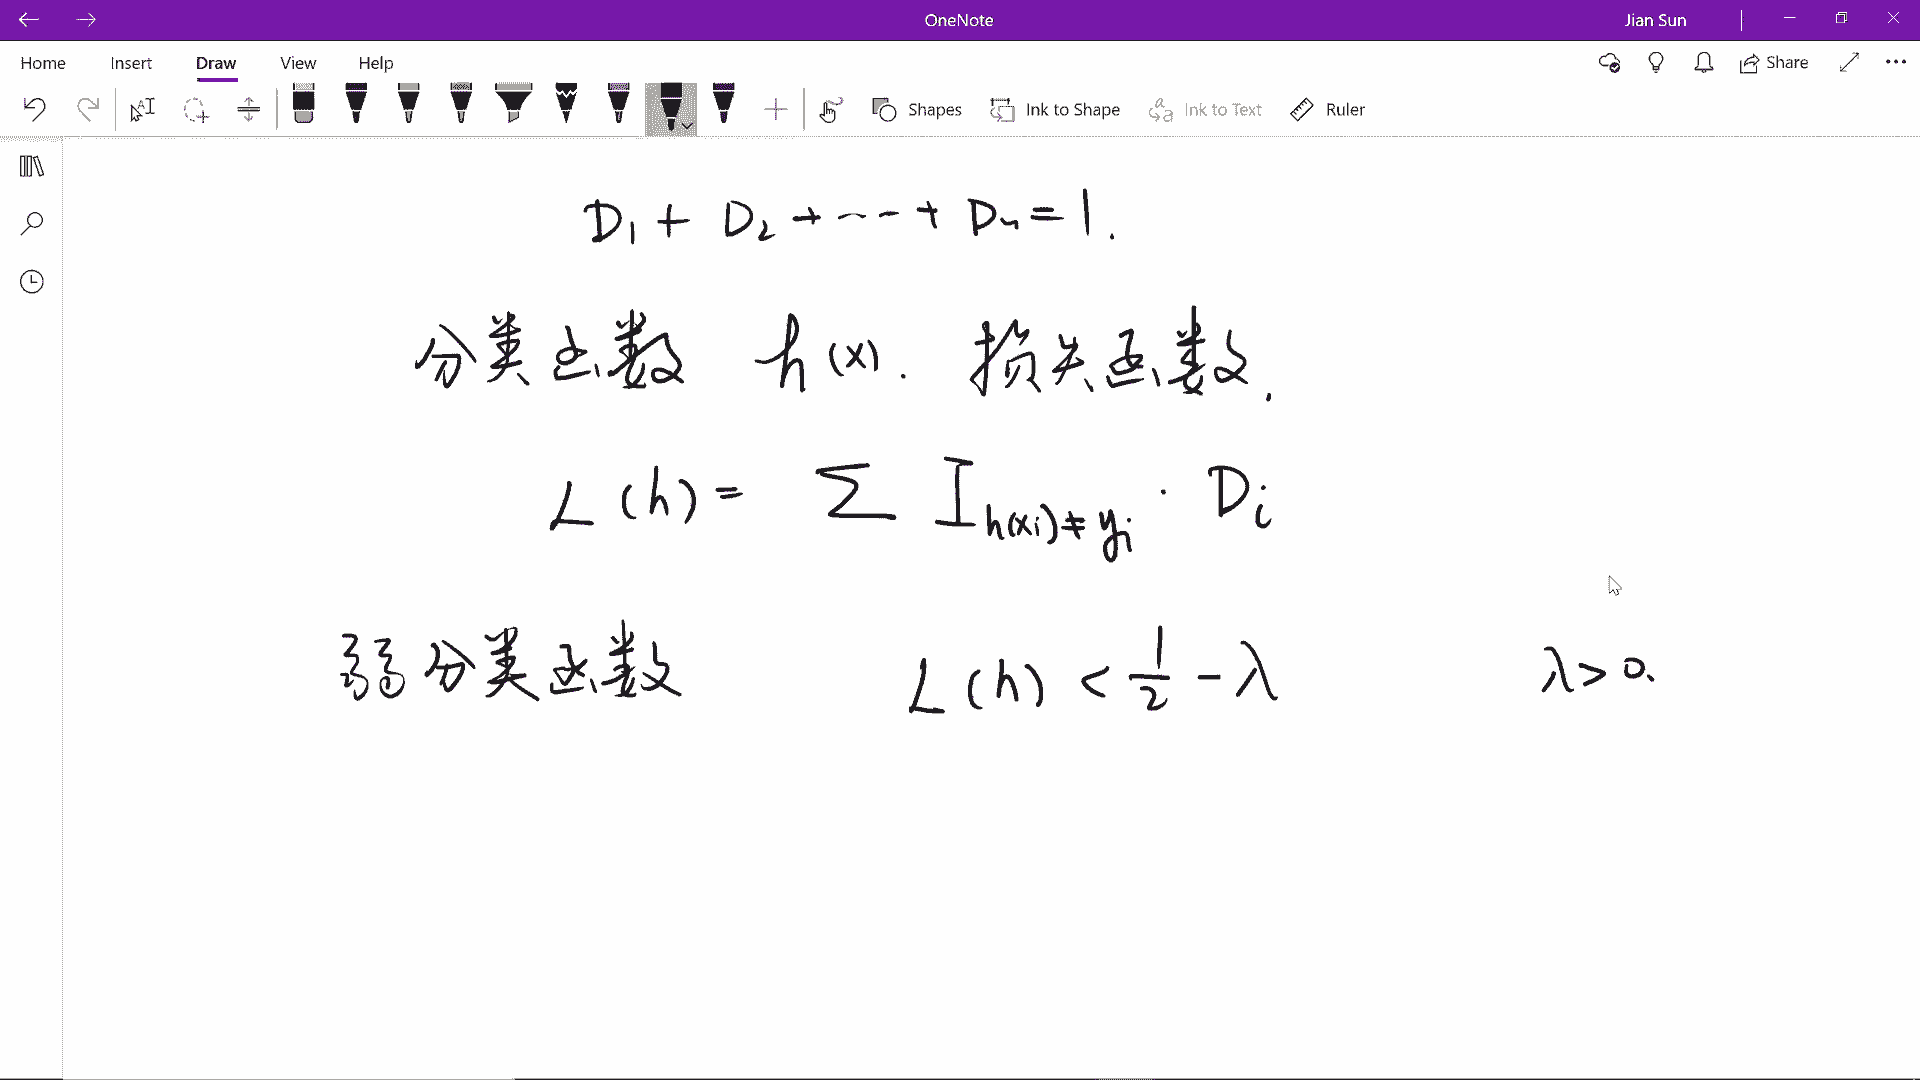 OneNote Jian Sun
Home Insert Draw View Help Share
Shapes Ink to Shape Ink to Text Ruler
D₁ + D₂ + ... + Dₙ = 1.
分类函数 h(x). 损失函数.
L(h) = Σ I_{h(xᵢ)≠yᵢ} · Dᵢ
弱分类函数 L(h) < 1/2 - λ λ > 0.